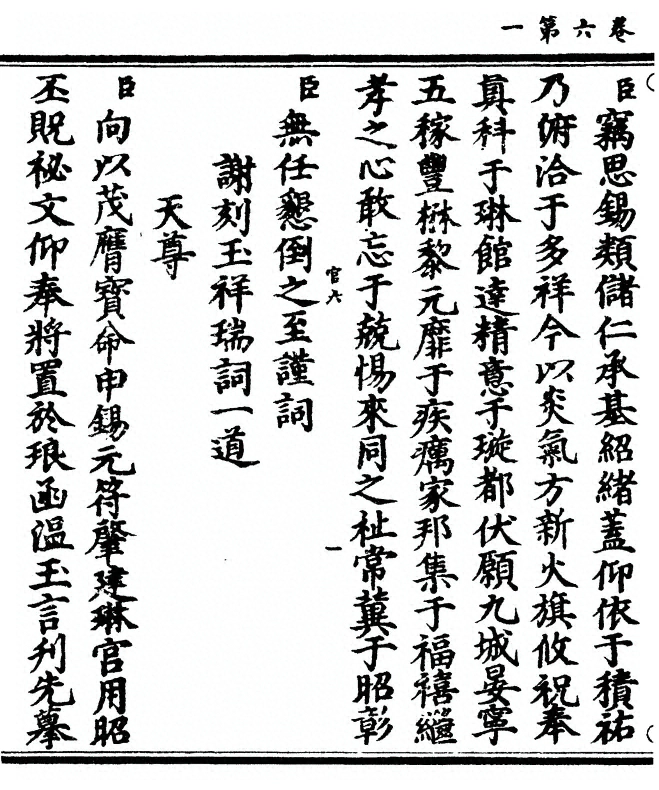 卷六第一
臣竊思錫類儲仁承基紹緒蓋仰依于積祐
乃俯洽于多祥今以炎氣方新火旗攸祝奉
真科于琳館達精意于璇都伏願九城晏寧
五稼豐楙黎元靡于疾癘家邦集于福禧繼
孝之心敢忘于兢惕來同之祉常冀于昭彰
官六
一
臣無任懇倒之至謹詞
謝刻玉祥瑞詞一道
天尊
臣向以茂膺寶命申錫元符肇建琳宮用昭
丕貺祕文仰奉將置於琅函溫玉言刋先擧